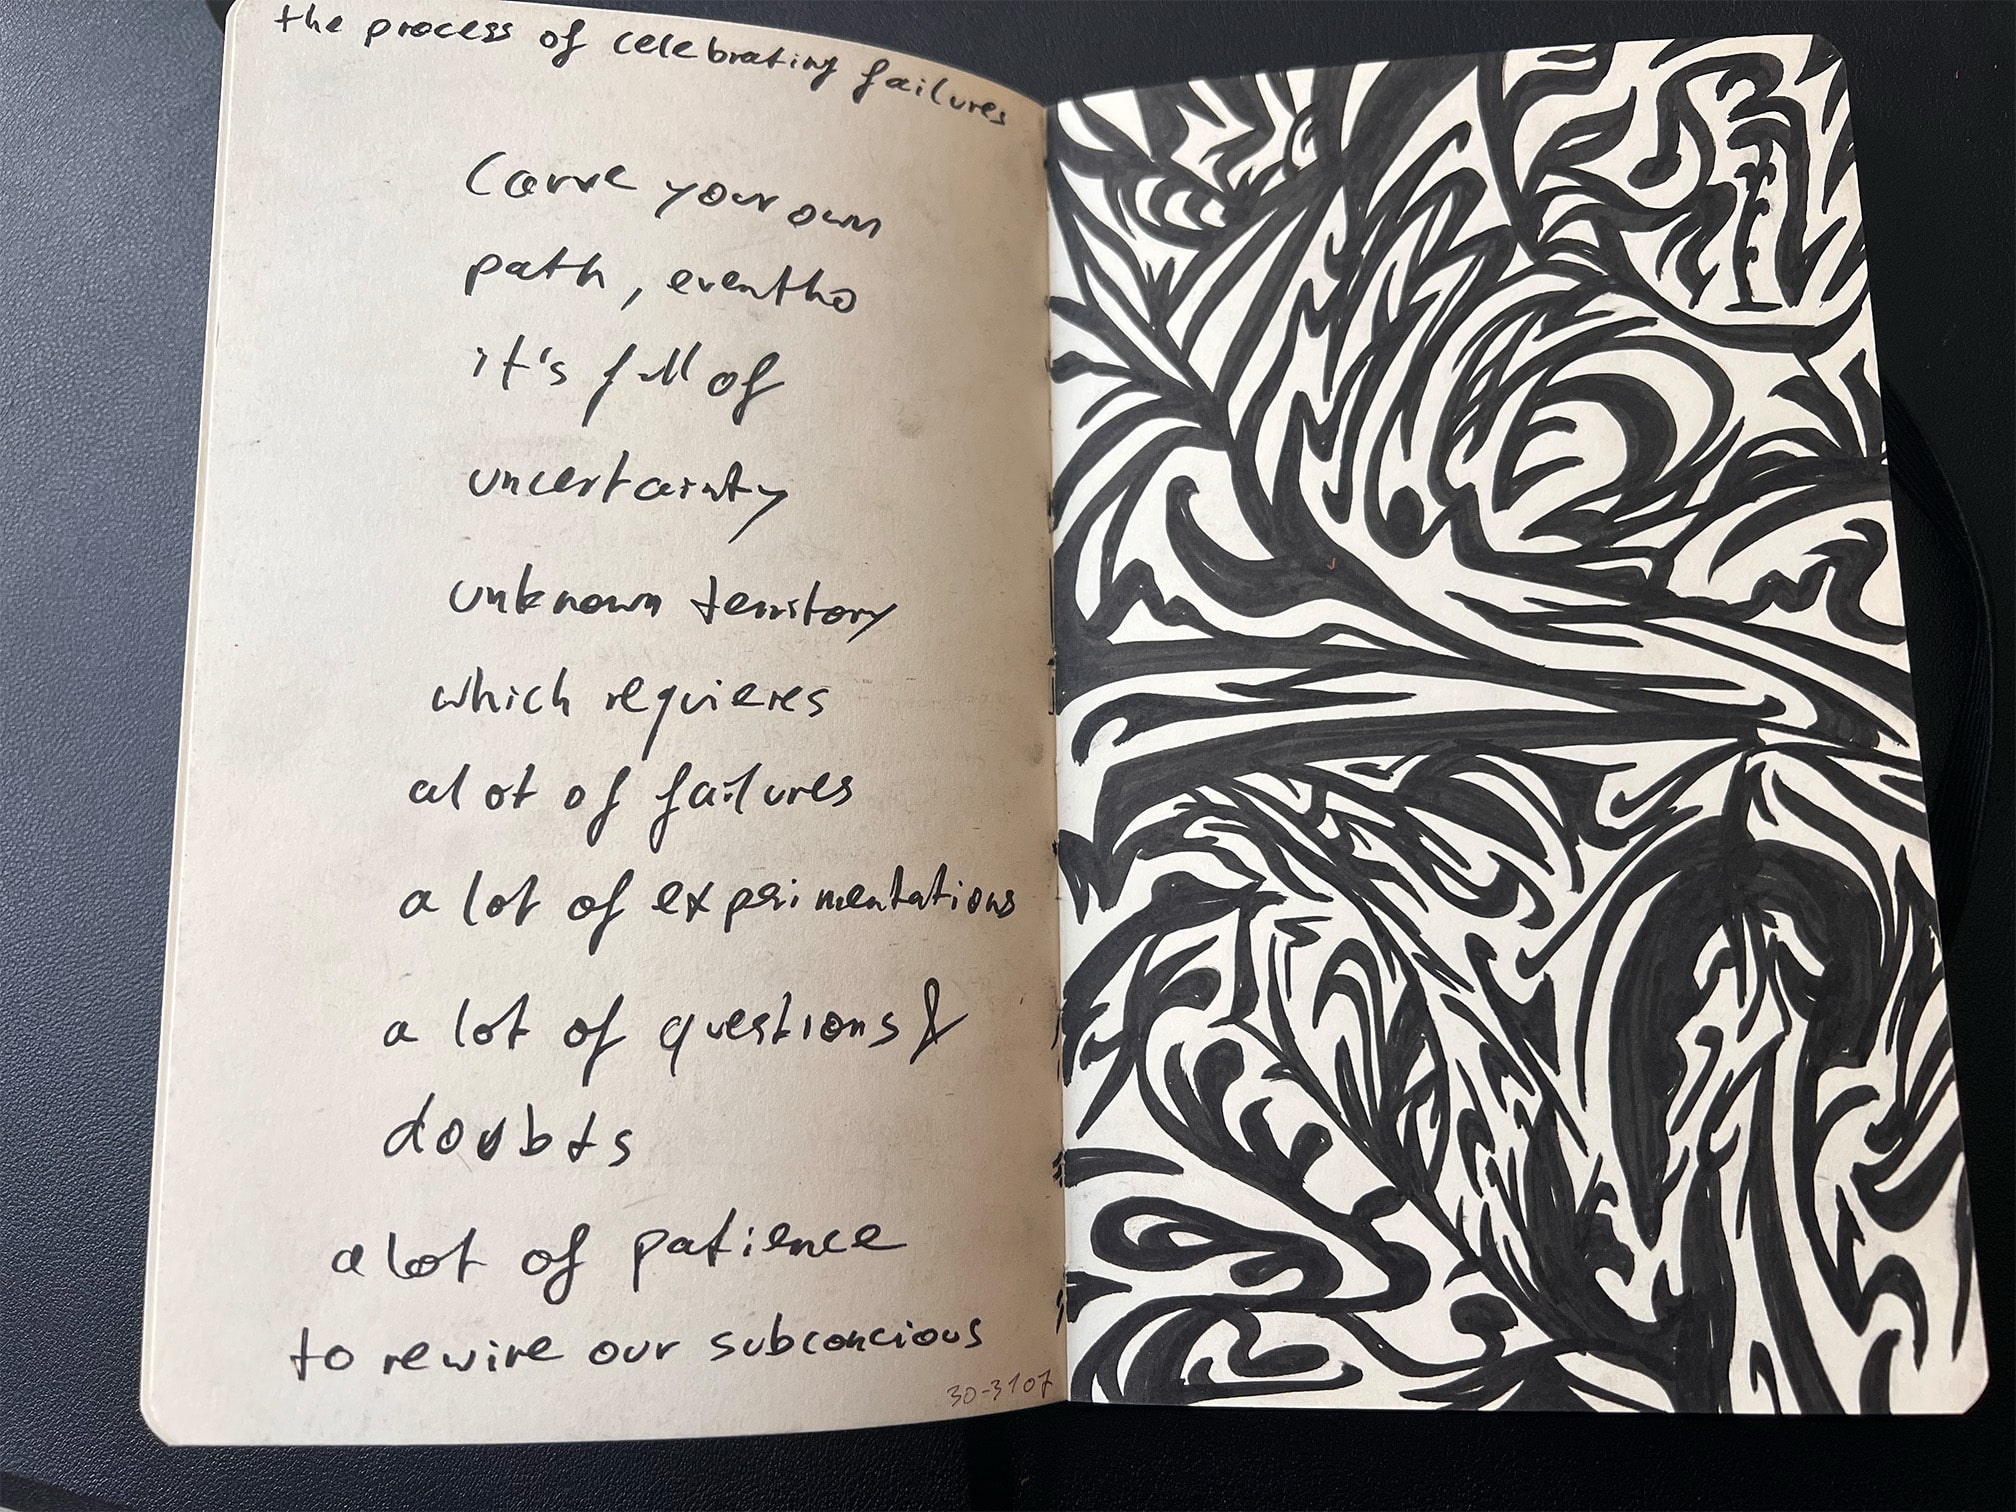 the process of celebrating failures
Carve your own
path, eventho
it's full of
uncertainty
unknown territory
which requieres
alot of failures
a lot of experimentations
a lot of questions &
doubts
a lot of patience
to rewire our subconcious
30-3107